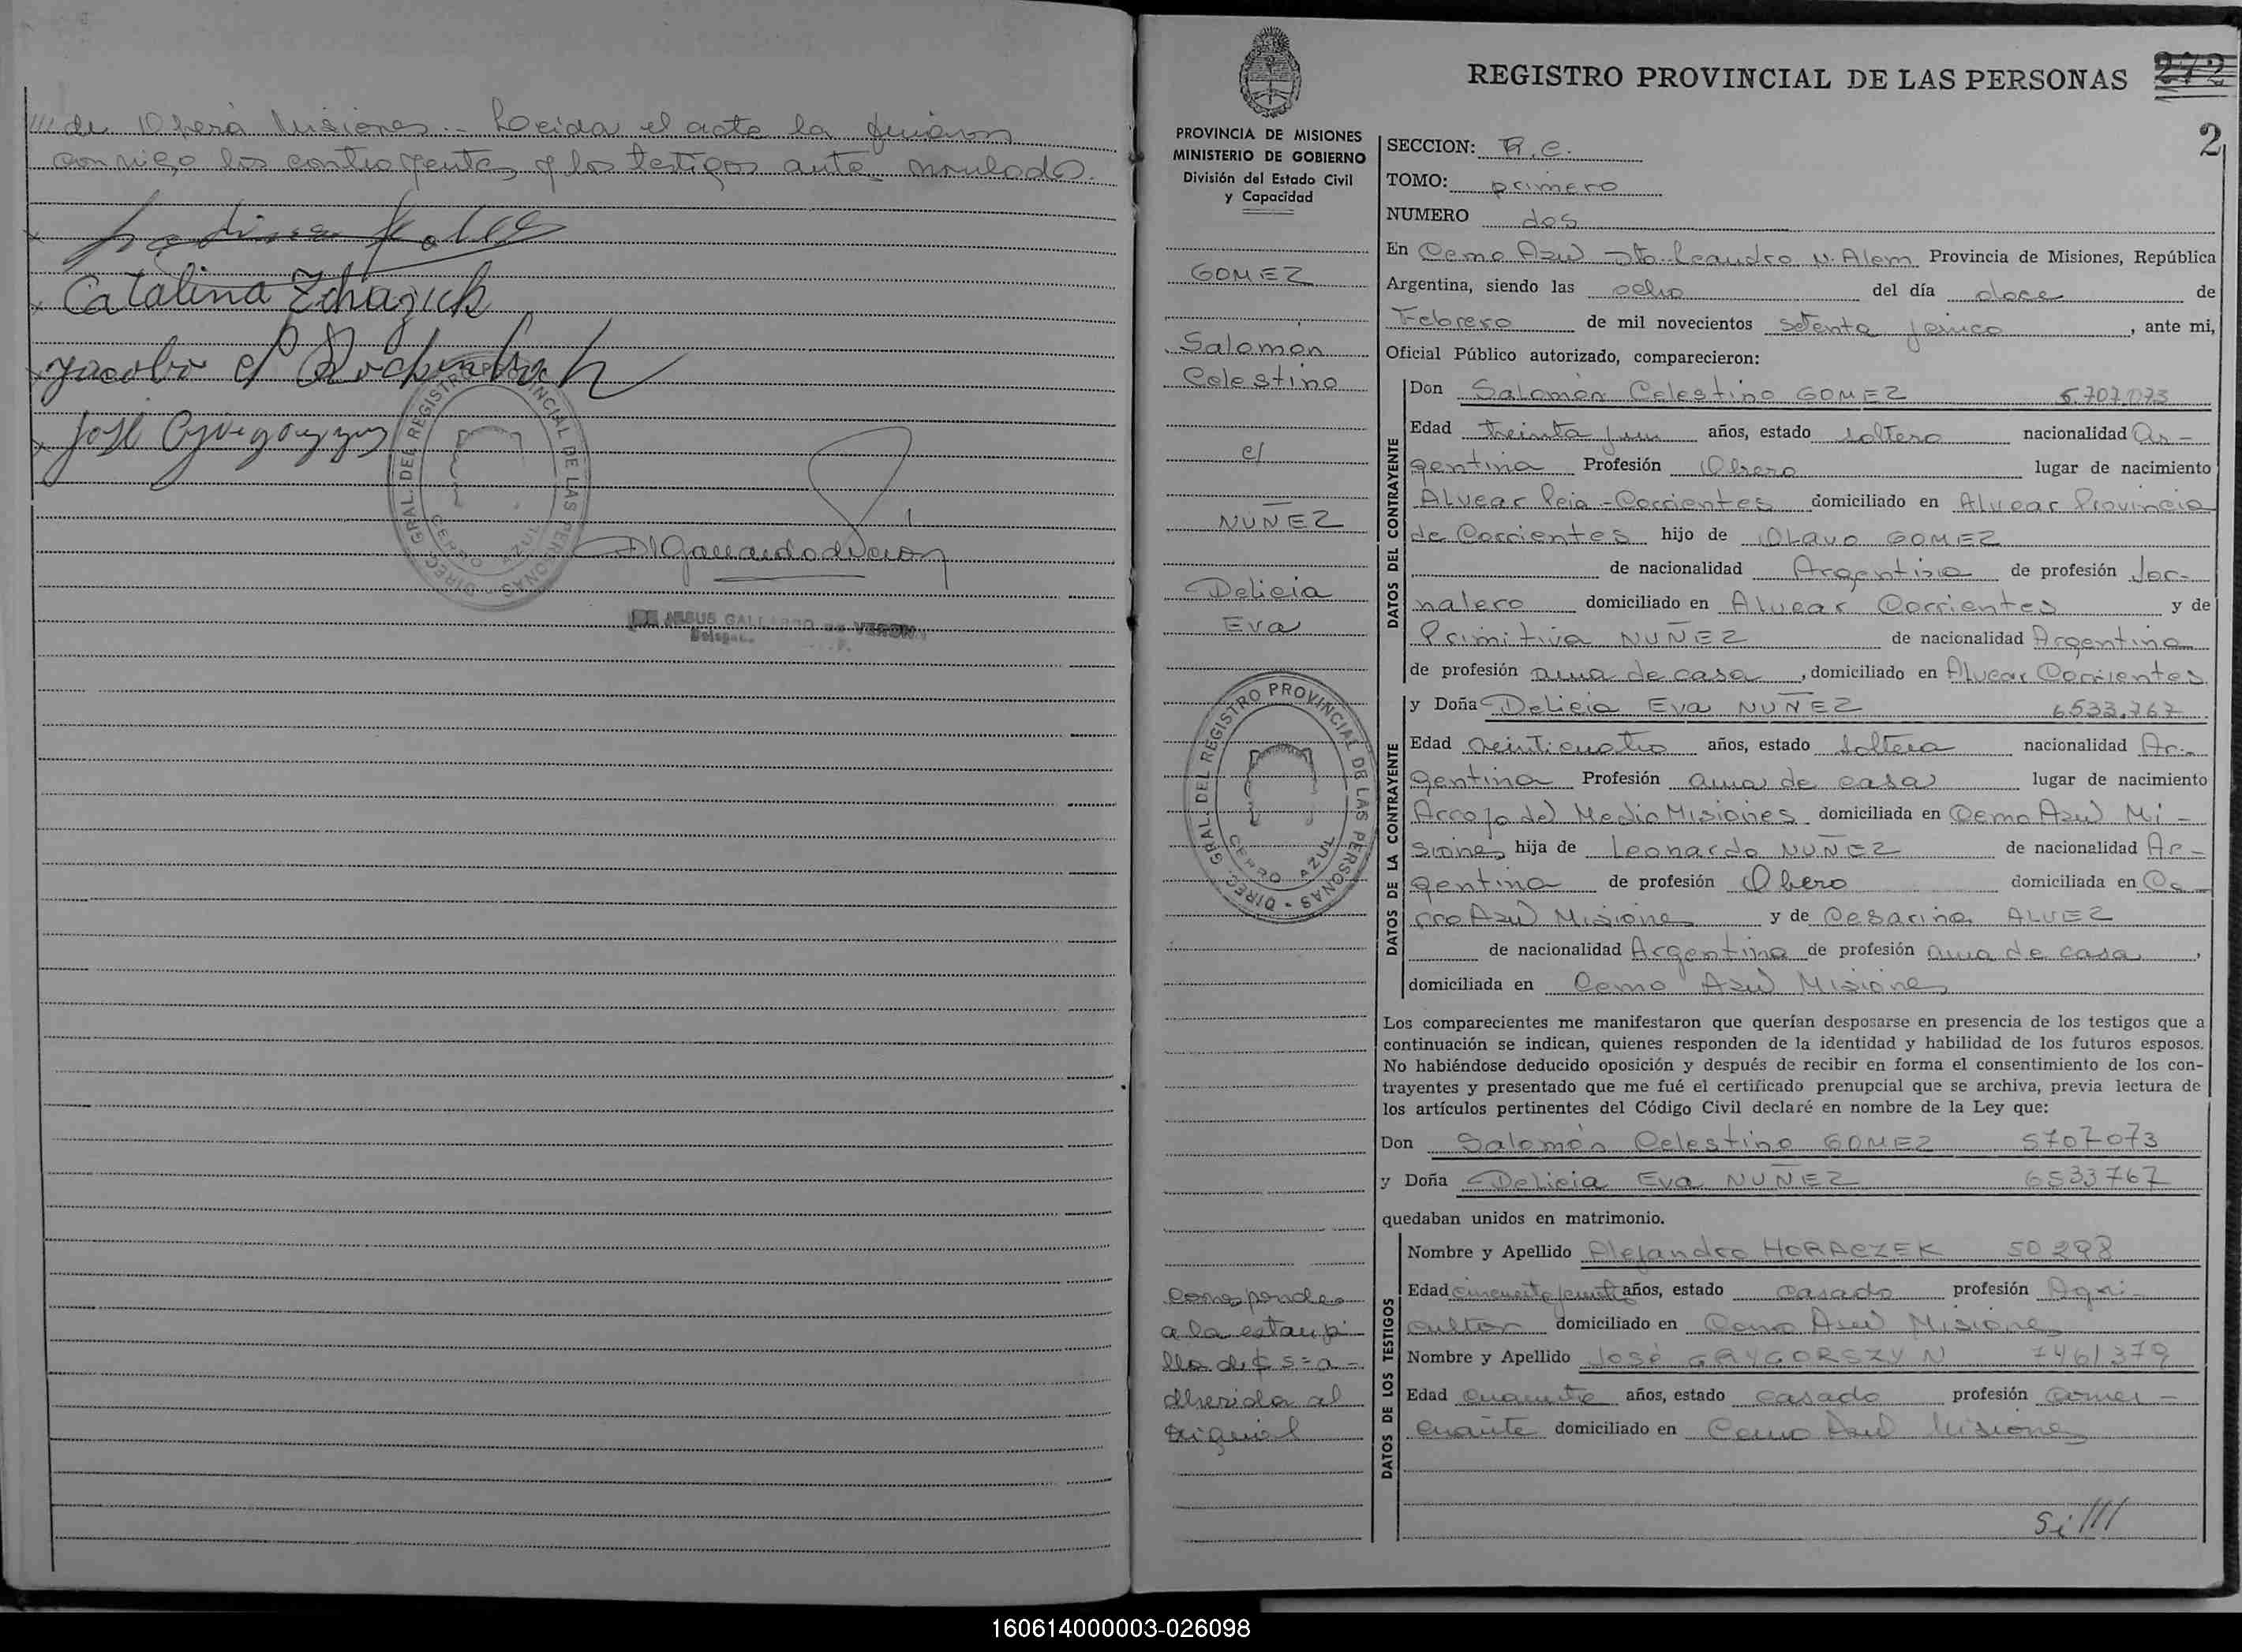 /// de Oberá Misiones.- Leída el acta la firman
conmigo los contrayentes y los testigos ante nombrado.
Catalina Zdrazuk
José Gryegorszyn
DIREC. GRAL. DEL REGISTRO PROVINCIAL DE LAS PERSONAS
CERRO AZUL
DE JESUS GALLARDO DE VERON
REGISTRO PROVINCIAL DE LAS PERSONAS 272
2
PROVINCIA DE MISIONES
MINISTERIO DE GOBIERNO
División del Estado Civil
y Capacidad
GOMEZ
Salomón
Celestino
c/
NUÑEZ
Delicia
Eva
DIREC. GRAL. DEL REGISTRO PROVINCIAL DE LAS PERSONAS
CERRO AZUL
Corresponde
a la estampi-
lla de $ 5= a-
dherida al
original
SECCION: R.C.
TOMO: primero
NUMERO dos
En Cerro Azul Dto. Leandro N. Alem Provincia de Misiones, República
Argentina, siendo las ocho del día doce de
Febrero de mil novecientos setenta y cinco, ante mi,
Oficial Público autorizado, comparecieron:
DATOS DEL CONTRAYENTE
Don Salomón Celestino GOMEZ 5.707.073
Edad treinta y un años, estado soltero nacionalidad Ar-
gentina Profesión Obrero lugar de nacimiento
Alvear Pcia - Corrientes domiciliado en Alvear Provincia
de Corrientes hijo de Olavo GOMEZ
de nacionalidad Argentina de profesión Jor-
nalero domiciliado en Alvear Corrientes y de
Primitiva NUÑEZ de nacionalidad Argentina
de profesión ama de casa, domiciliado en Alvear Corrientes
DATOS DE LA CONTRAYENTE
y Doña Delicia Eva NUÑEZ 6.533.767
Edad veinticuatro años, estado soltera nacionalidad Ar-
gentina Profesión ama de casa lugar de nacimiento
Arroyo del Medio Misiones domiciliada en Cerro Azul Mi-
siones hija de Leonardo NUÑEZ de nacionalidad Ar-
gentina de profesión Obrero domiciliada en Ce-
rro Azul Misiones y de Cesarina ALVEZ
de nacionalidad Argentina de profesión ama de casa,
domiciliada en Cerro Azul Misiones
Los comparecientes me manifestaron que querían desposarse en presencia de los testigos que a
continuación se indican, quienes responden de la identidad y habilidad de los futuros esposos.
No habiéndose deducido oposición y después de recibir en forma el consentimiento de los con-
trayentes y presentado que me fué el certificado prenupcial que se archiva, previa lectura de
los artículos pertinentes del Código Civil declaré en nombre de la Ley que:
Don Salomón Celestino GOMEZ 5707073
y Doña Delicia Eva NUÑEZ 6533767
quedaban unidos en matrimonio.
DATOS DE LOS TESTIGOS
Nombre y Apellido Alejandro HORACZEK 50298
Edad años, estado casado profesión Agri-
cultor domiciliado en Cerro Azul Misiones
Nombre y Apellido José GRYGORSZYN 7461379
Edad cuarenta años, estado casado profesión comer-
ciante domiciliado en Cerro Azul Misiones
Si///
160614000003-026098